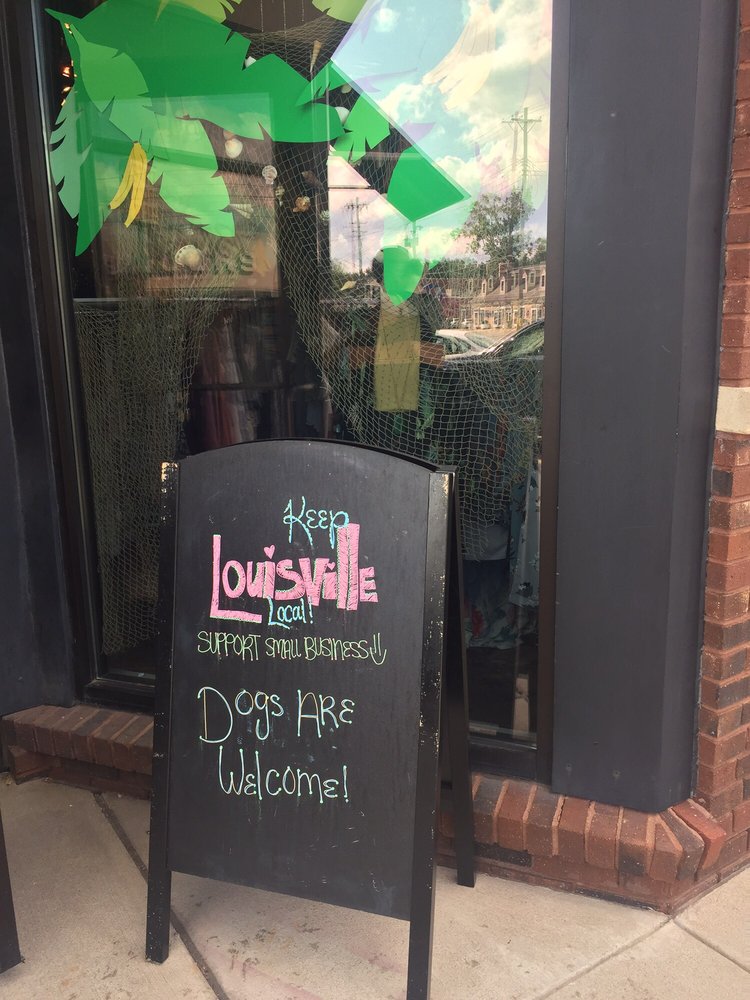 Keep
Louisville
Local!
SUPPORT SMALL BUSINESS
Dogs ARe
Welcome!